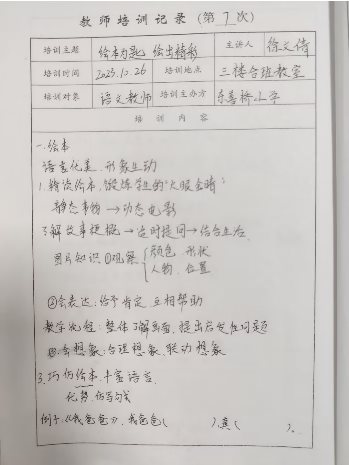 教师培训记录（第 7 次）
培训主题 绘本为匙 绘出精彩 主讲人 徐文倩
培训时间 2023.10.26 培训地点 三楼合班教室
培训对象 语文教师 培训主办方 东善桥小学
培 训 内 容
一.绘本
语言优美、形象生动
1.精读绘本,锻炼学生的“火眼金睛”
静态事物→动态电影
了解故事梗概→适时提问→结合生活
图片知识 ①观察 颜色、形状
人物、位置
②会表达:给予肯定、互相帮助
教学流程:整体了解画面,提出启发性问题
会想象:合理想象、联动想象
3.巧仿绘本,丰富语言.
优势、仿写句式
例子:《我爸爸》,我爸爸( )真( )。